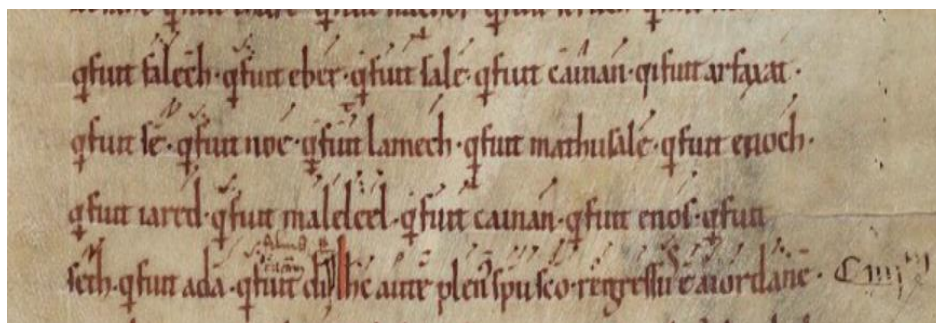 q̄ fuit falech · q̄ fuit eber · q̄ fuit sale · q̄ fuit cainan · qi fuit arfaxat ·
q̄ fuit sē · q̄ fuit noe · q̄ fuit lamech · q̄ fuit mathusalē · q̄ fuit enoch ·
q̄ fuit iared · q̄ fuit maleleel · q̄ fuit cainan · q̄ fuit enos · q̄ fuit
seth · q̄ fuit adā · q̄ fuit di Ihc autē plen spu sco · regressus ē a iordanē ·